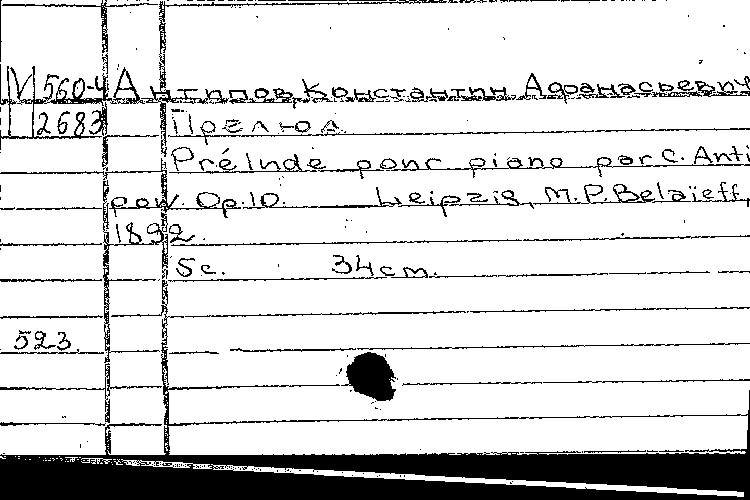 М 560-4 Антипов, Константин Афанасьевич
2683 Прелюд
Prélude pour piano par C. Anti
pow. Op.10. Leipzig, M.P.Belaïeff,
1892.
5 с. 34 cm.
523